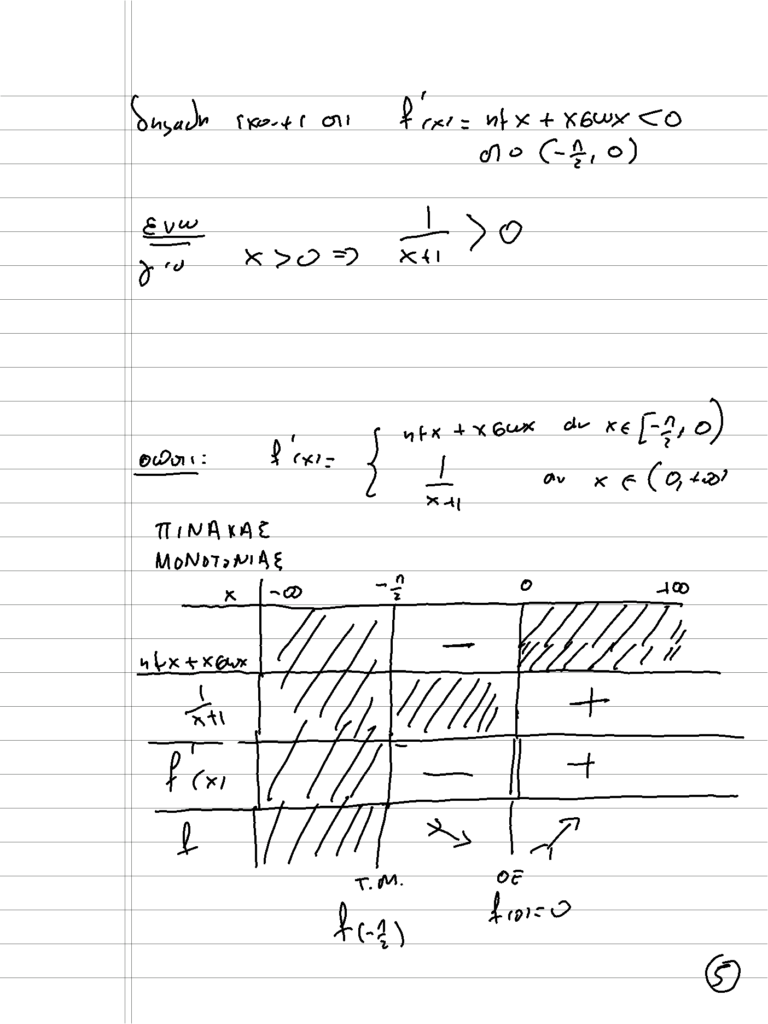 δηλαδή f'(x) = ημx + xσυνx < 0
στο (-π/2, 0)
ενω
για x > 0 ⇒ 1/(x+1) > 0
οπότε: f'(x) = { ημx + xσυνx αν x ∈ [-π/2, 0)
1/(x+1) αν x ∈ (0, +∞)
ΠΙΝΑΚΑΣ
ΜΟΝΟΤΟΝΙΑΣ
x -∞ -π/2 0 +∞
ημx + xσυνx −
1/(x+1) +
f'(x) − +
f ↘ ↗
Τ.Μ. ΟΕ
f(-π/2) f(0) = 0
5